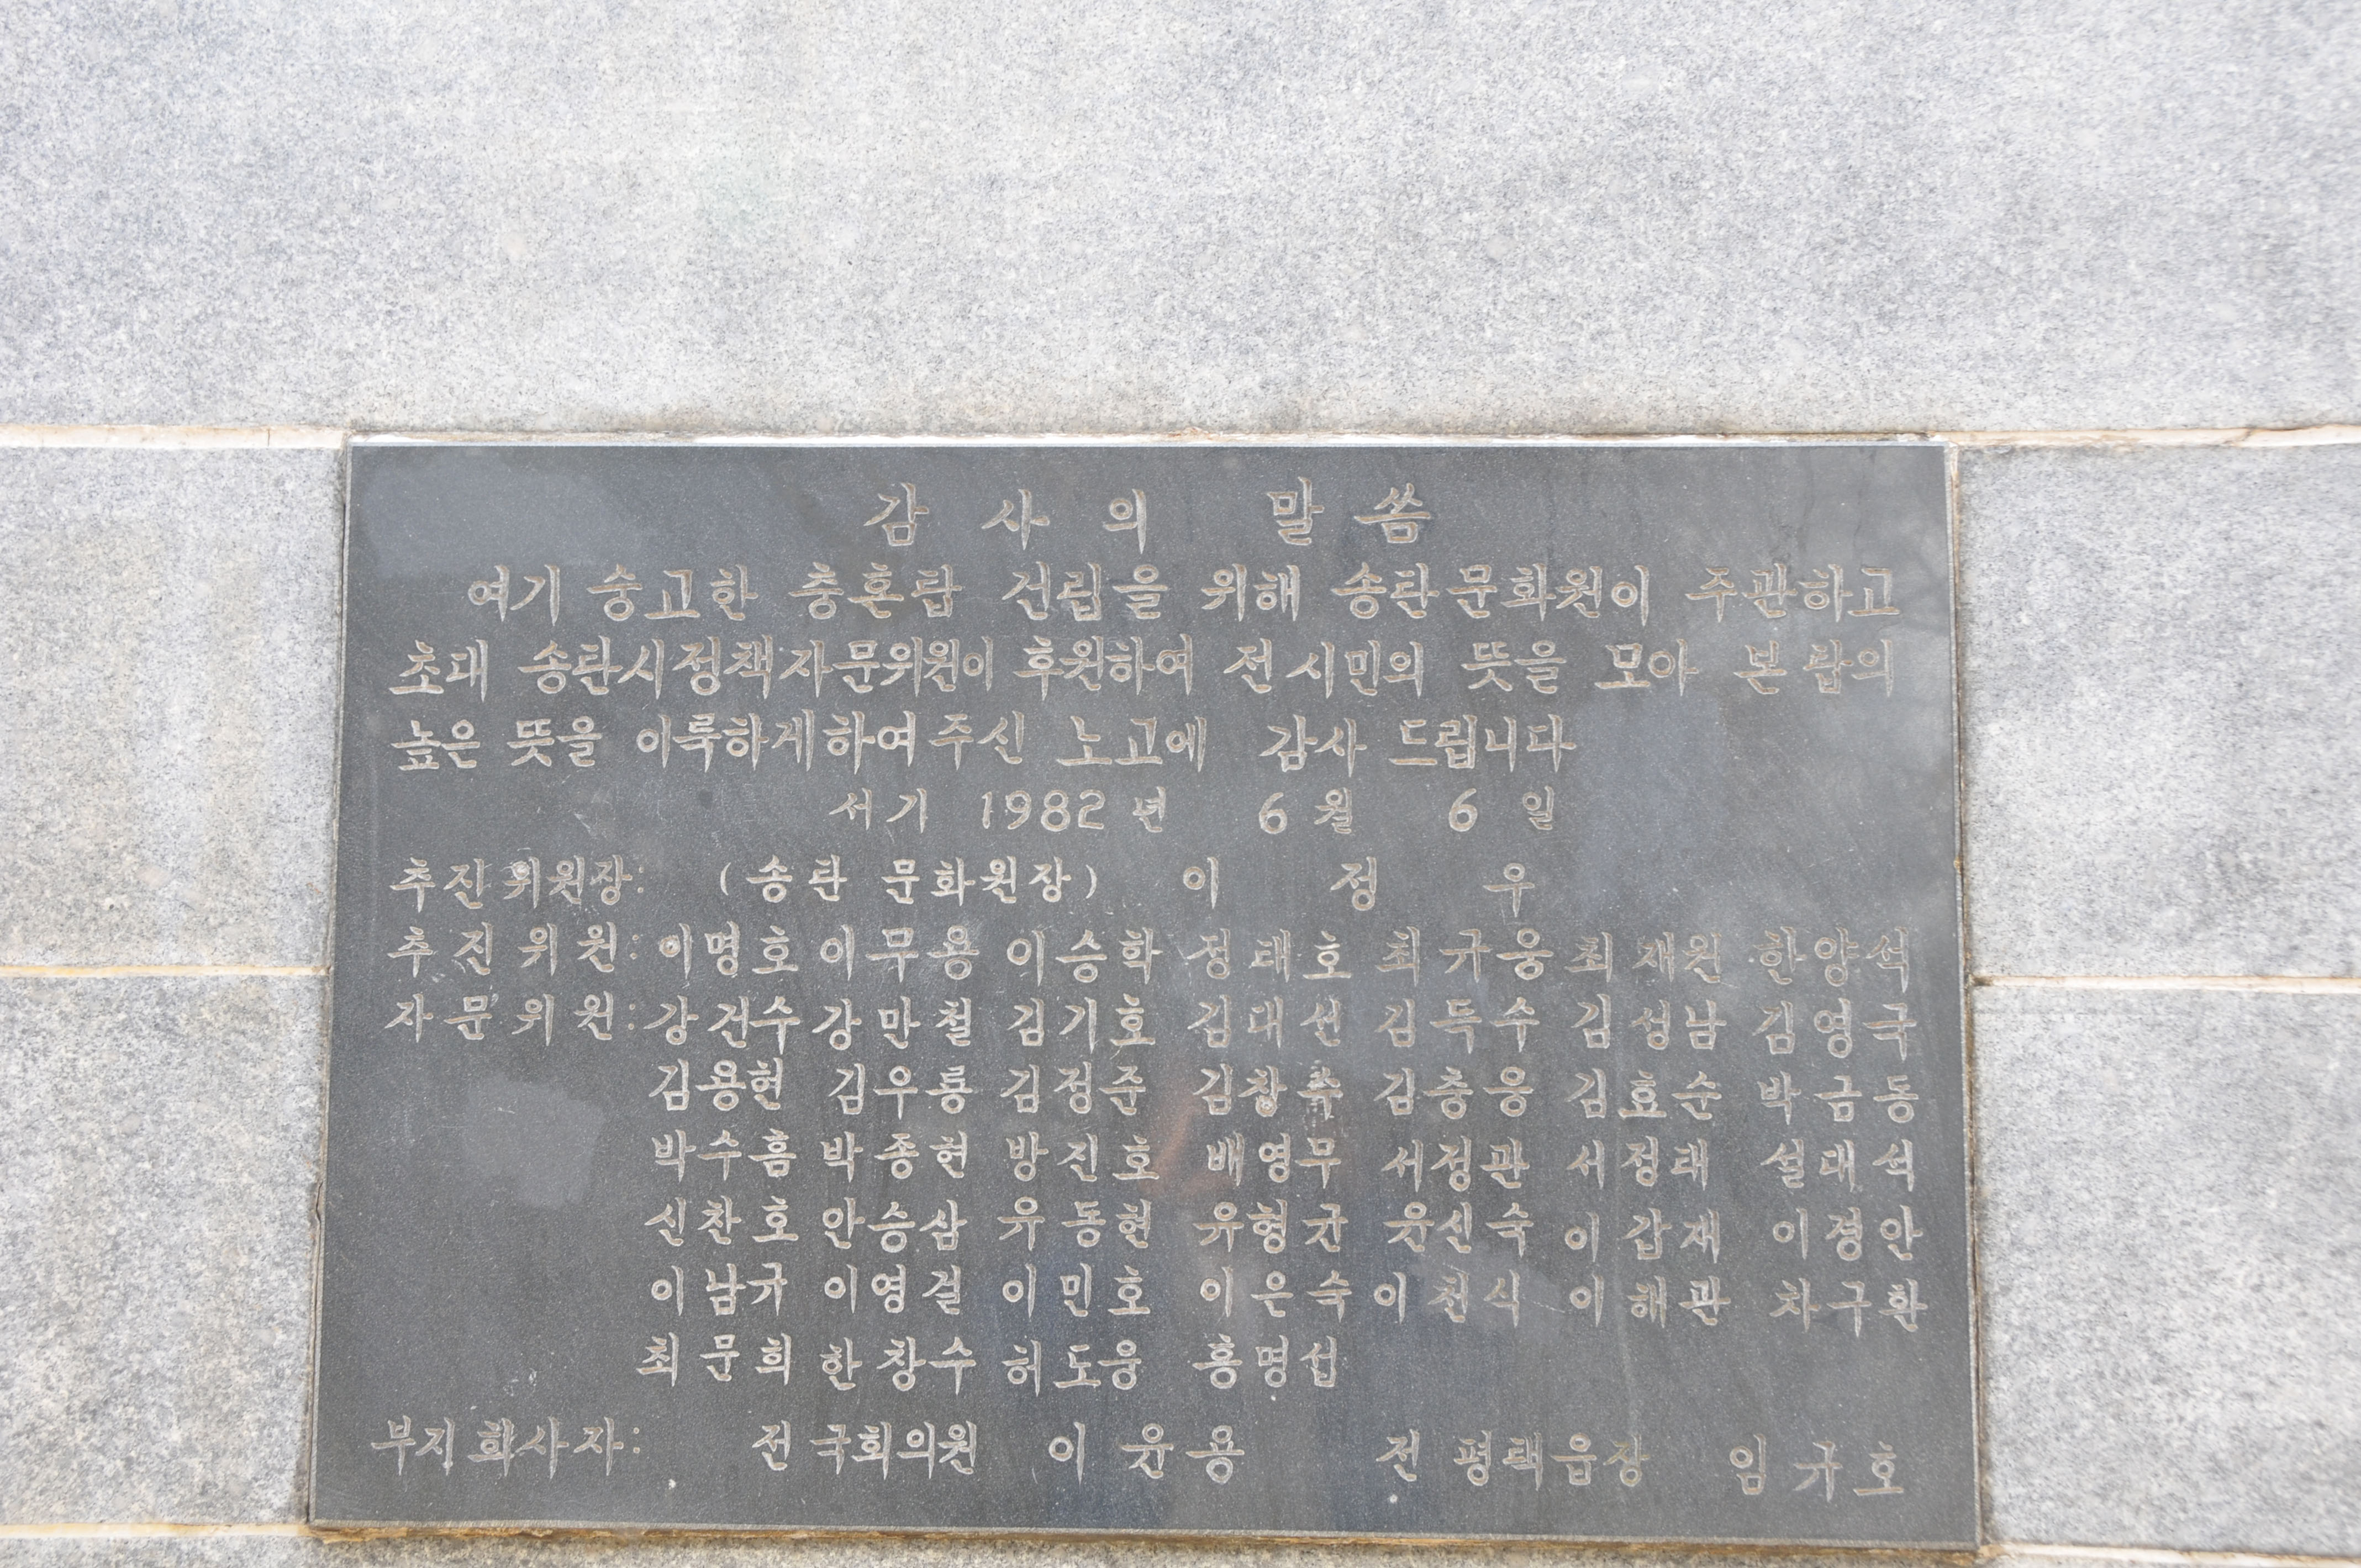 감사의 말씀
여기 숭고한 충혼탑 건립을 위해 송탄문화원이 주관하고
초대 송탄시정책자문위원이 후원하여 전시민의 뜻을 모아 본탑의
높은 뜻을 이룩하게하여주신 노고에 감사 드립니다
서기 1982년 6월 6일
추진위원장: (송탄 문화원장) 이정우
추진위원: 이명호 이무용 이승학 정태호 최규웅 최재원 한양석
자문위원: 강건수 강만철 김기호 김대선 김득수 김성남 김영국
김용현 김우룡 김정준 김창수 김충웅 김효순 박금동
박수흠 박종현 방진호 배영무 서정관 서정태 설대석
신찬호 안승삼 유동현 유형균 윤신숙 이갑재 이경안
이남규 이영걸 이민호 이은숙 이천식 이해관 차구환
최문희 한창수 허도웅 홍명섭
부지희사자: 전 국회의원 이윤용 전 평택읍장 임규호